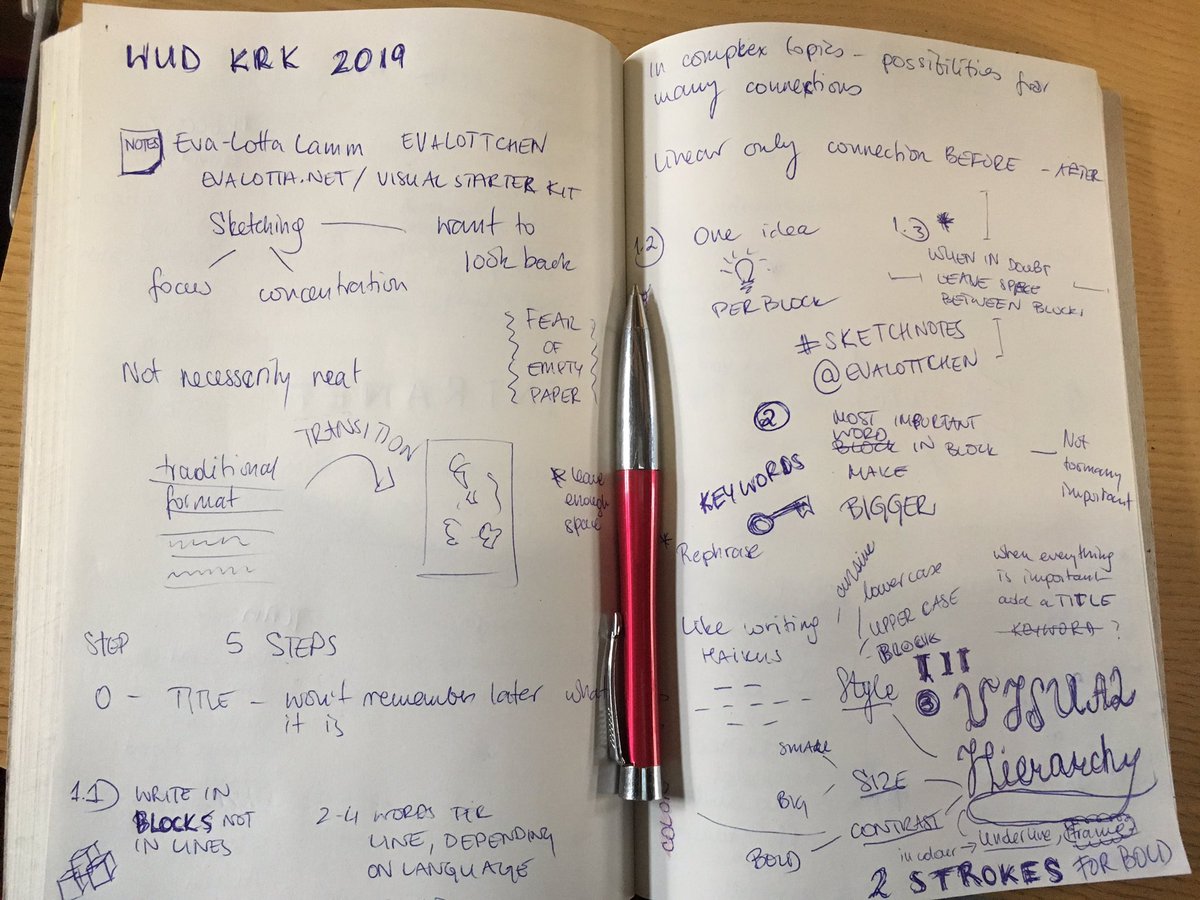 WUD KRK 2019
NOTES
Eva-Lotta Lamm EVALOTTCHEN
EVALOTTA.NET/VISUAL STARTER KIT
Sketching
want to
look back
focus
concentration
FEAR
OF
EMPTY
PAPER
Not necessarily neat
TRANSITION
traditional
format
* leave
enough
space
STEP 5 STEPS
0 - TITLE - won't remember later what
it is
1.1) WRITE IN
BLOCKS NOT
IN LINES
2-4 WORDS PER
LINE, DEPENDING
ON LANGUAGE
In complex topics - possibilities for
many connections
Linear only connection BEFORE - AFTER
1.2) One idea
PER BLOCK
1.3) *
WHEN IN DOUBT
LEAVE SPACE
BETWEEN BLOCKS
#SKETCHNOTES
@EVALOTTCHEN
2
KEYWORDS
MOST IMPORTANT
WORD
BLOCK IN BLOCK
MAKE
BIGGER
Not
tomany
important
* Rephrase
Like writing
HAIKUS
cursive
lowercase
UPPER CASE
BLOCK
Style
when everything
is important
add a TITLE
KEYWORD ?
3 VISUAL
Hierarchy
SMALL
BIG
SIZE
CONTRAST
BOLD
in colour → underline, frame
2 STROKES FOR BOLD